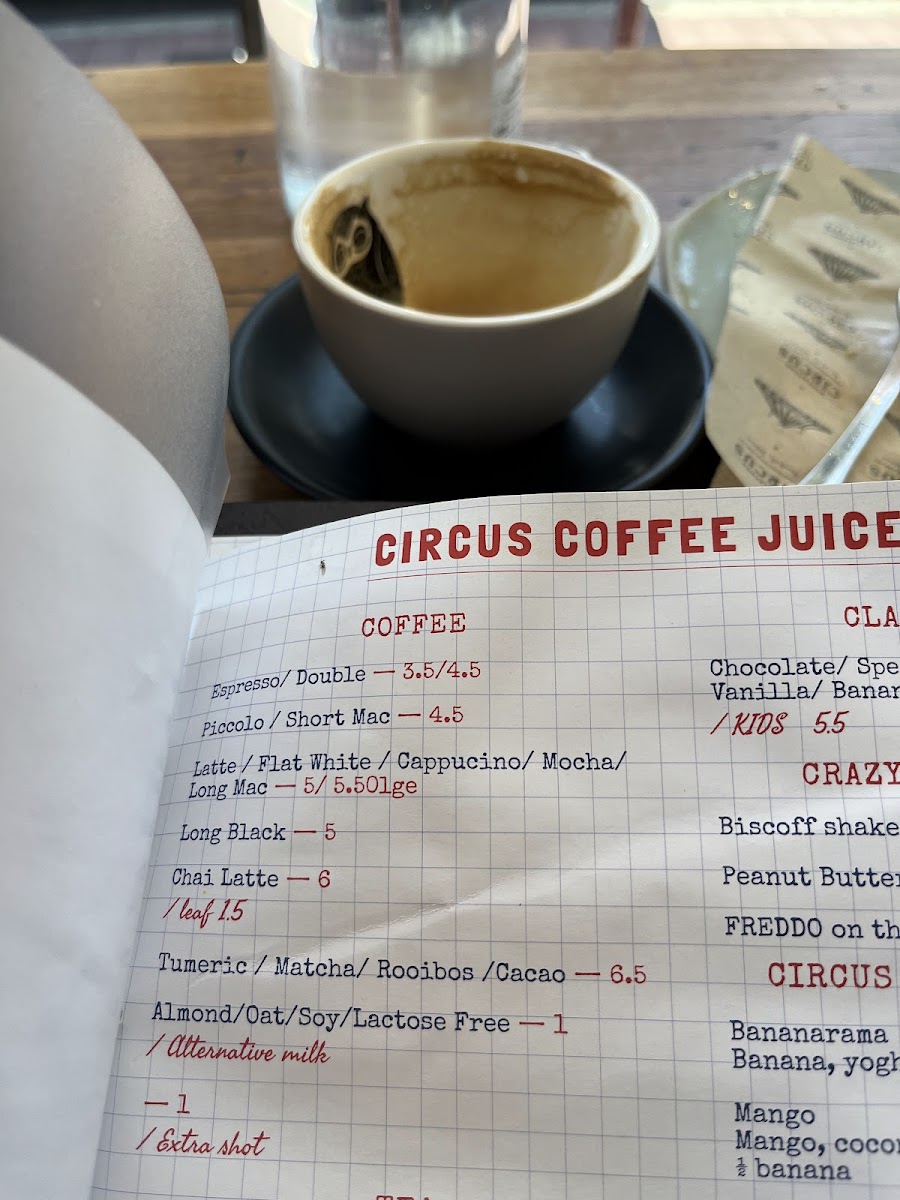 CIRCUS COFFEE JUICE
COFFEE
Espresso/ Double — 3.5/4.5
Piccolo / Short Mac — 4.5
Latte / Flat White / Cappucino/ Mocha/
Long Mac — 5/ 5.50lge
Long Black — 5
Chai Latte — 6
/ leaf 1.5
Tumeric / Matcha/ Rooibos /Cacao — 6.5
Almond/Oat/Soy/Lactose Free — 1
/ Alternative milk
— 1
/ Extra shot
CLA
Chocolate/ Spe
Vanilla/ Banan
/ KIDS 5.5
CRAZY
Biscoff shake
Peanut Butter
FREDDO on th
CIRCUS
Bananarama
Banana, yogh
Mango
Mango, coco
½ banana
CIRCUS
CIRCUS